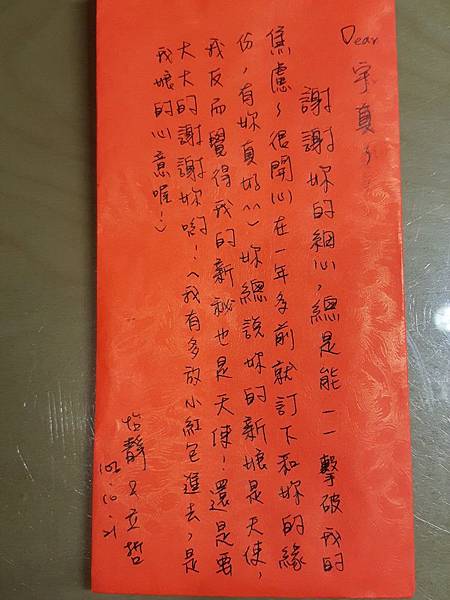 Dear 宇真
謝謝妳的細心,總是能一一擊破我的
焦慮~很開心在一年多前就訂下和妳的緣
份,有妳真好^^)妳總說妳的新娘是天使,
我反而覺得我的新秘也是天使!還是要
大大的謝謝妳喲!(我有多放小紅包進去,是
我娘的心意喔!)
怡靜&立哲
102.10.21